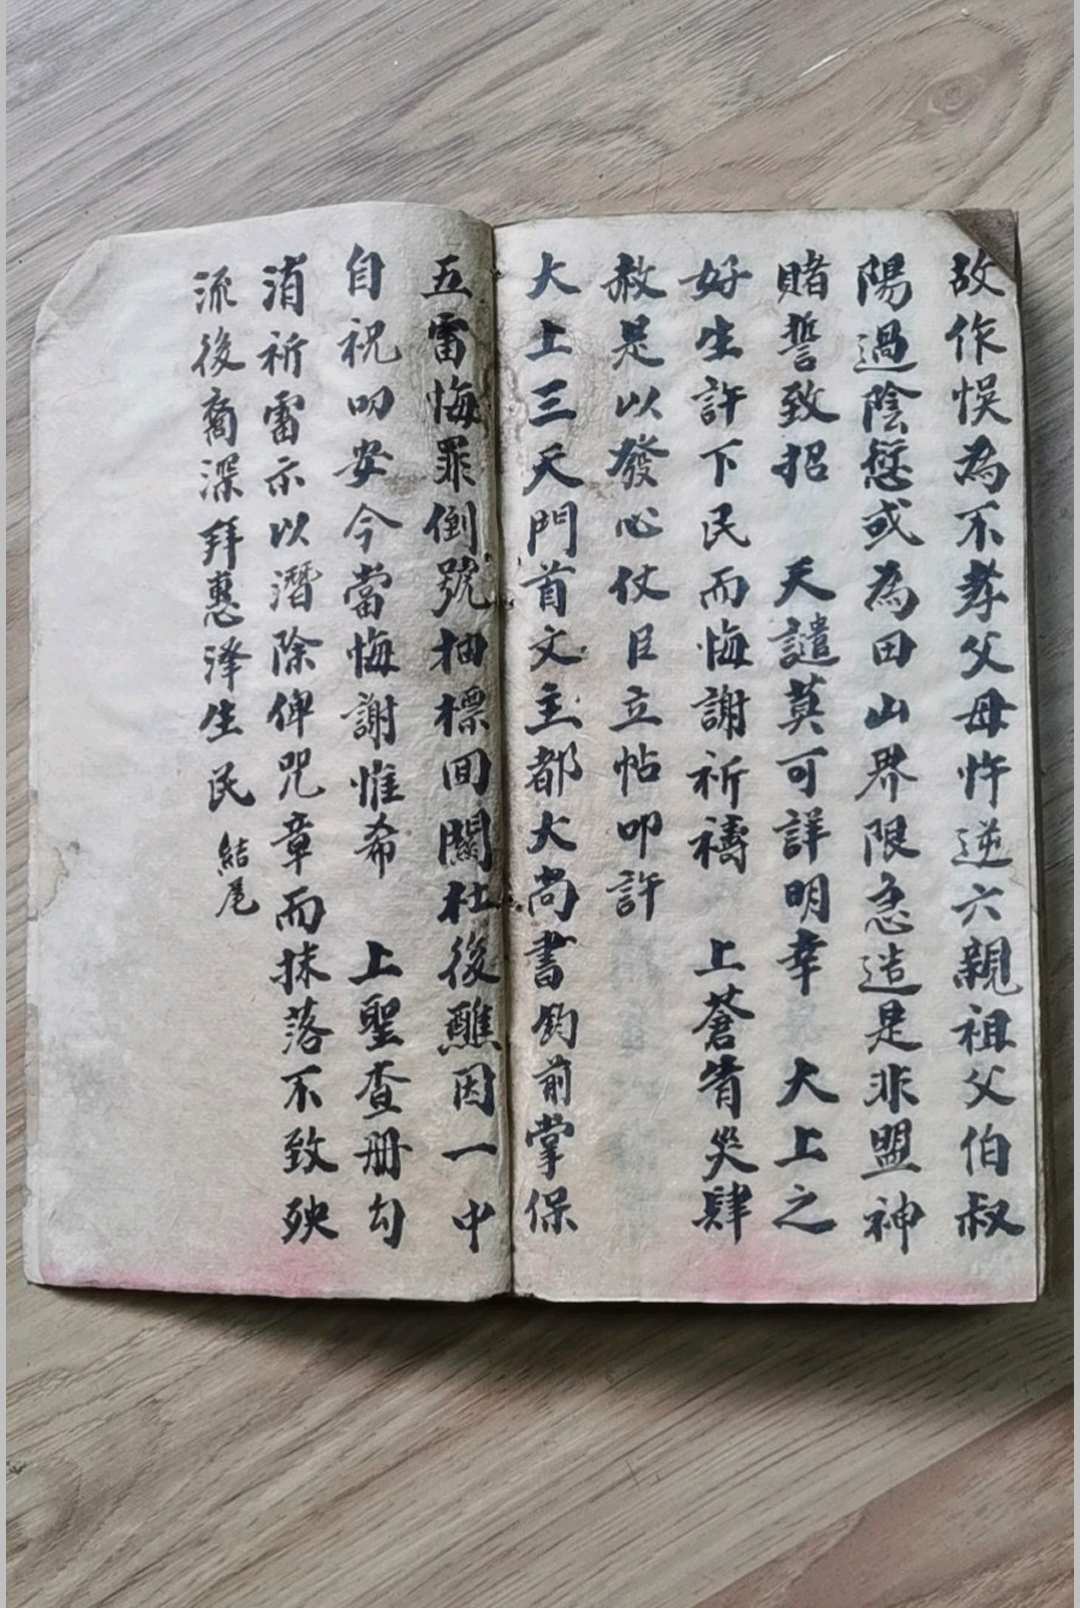 故作悞為不孝父母忤逆六親祖父伯叔
陽過陰愆或為田山界限急造是非盟神
賭誓致招 天譴莫可詳明幸 大上之
好生許下民而悔謝祈禱 上蒼眚災肆
赦是以發心仗臣立帖叩許
大上三天門首文主都大尚書鈞前掌保
五雷悔罪倒號抽標回關杜後醮因一中
自祝叨安今當悔謝惟希 上聖查册勾
消祈雷示以潛除俾咒章而抹落不致殃
流後裔深拜惠澤生民 結尾